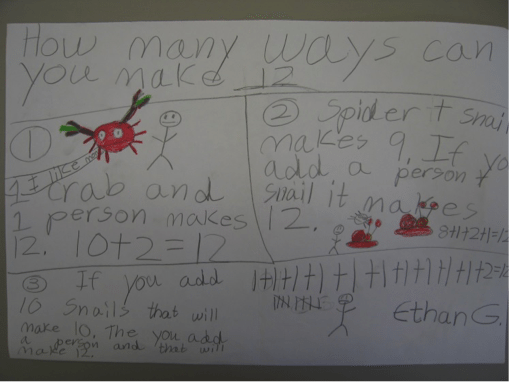 How many ways can
you make 12
1
I like me
1 crab and
1 person makes
12. 10+2=12
2 Spider + snail
makes 9. If yo
add a person +
snail it makes
12.
8+1+2+1=12
3 If you add
10 Snails that will
make 10. The you add
a person and that will
make 12.
1+1+1+1+1+1+1+1+1+1+2=12
Ethan G.